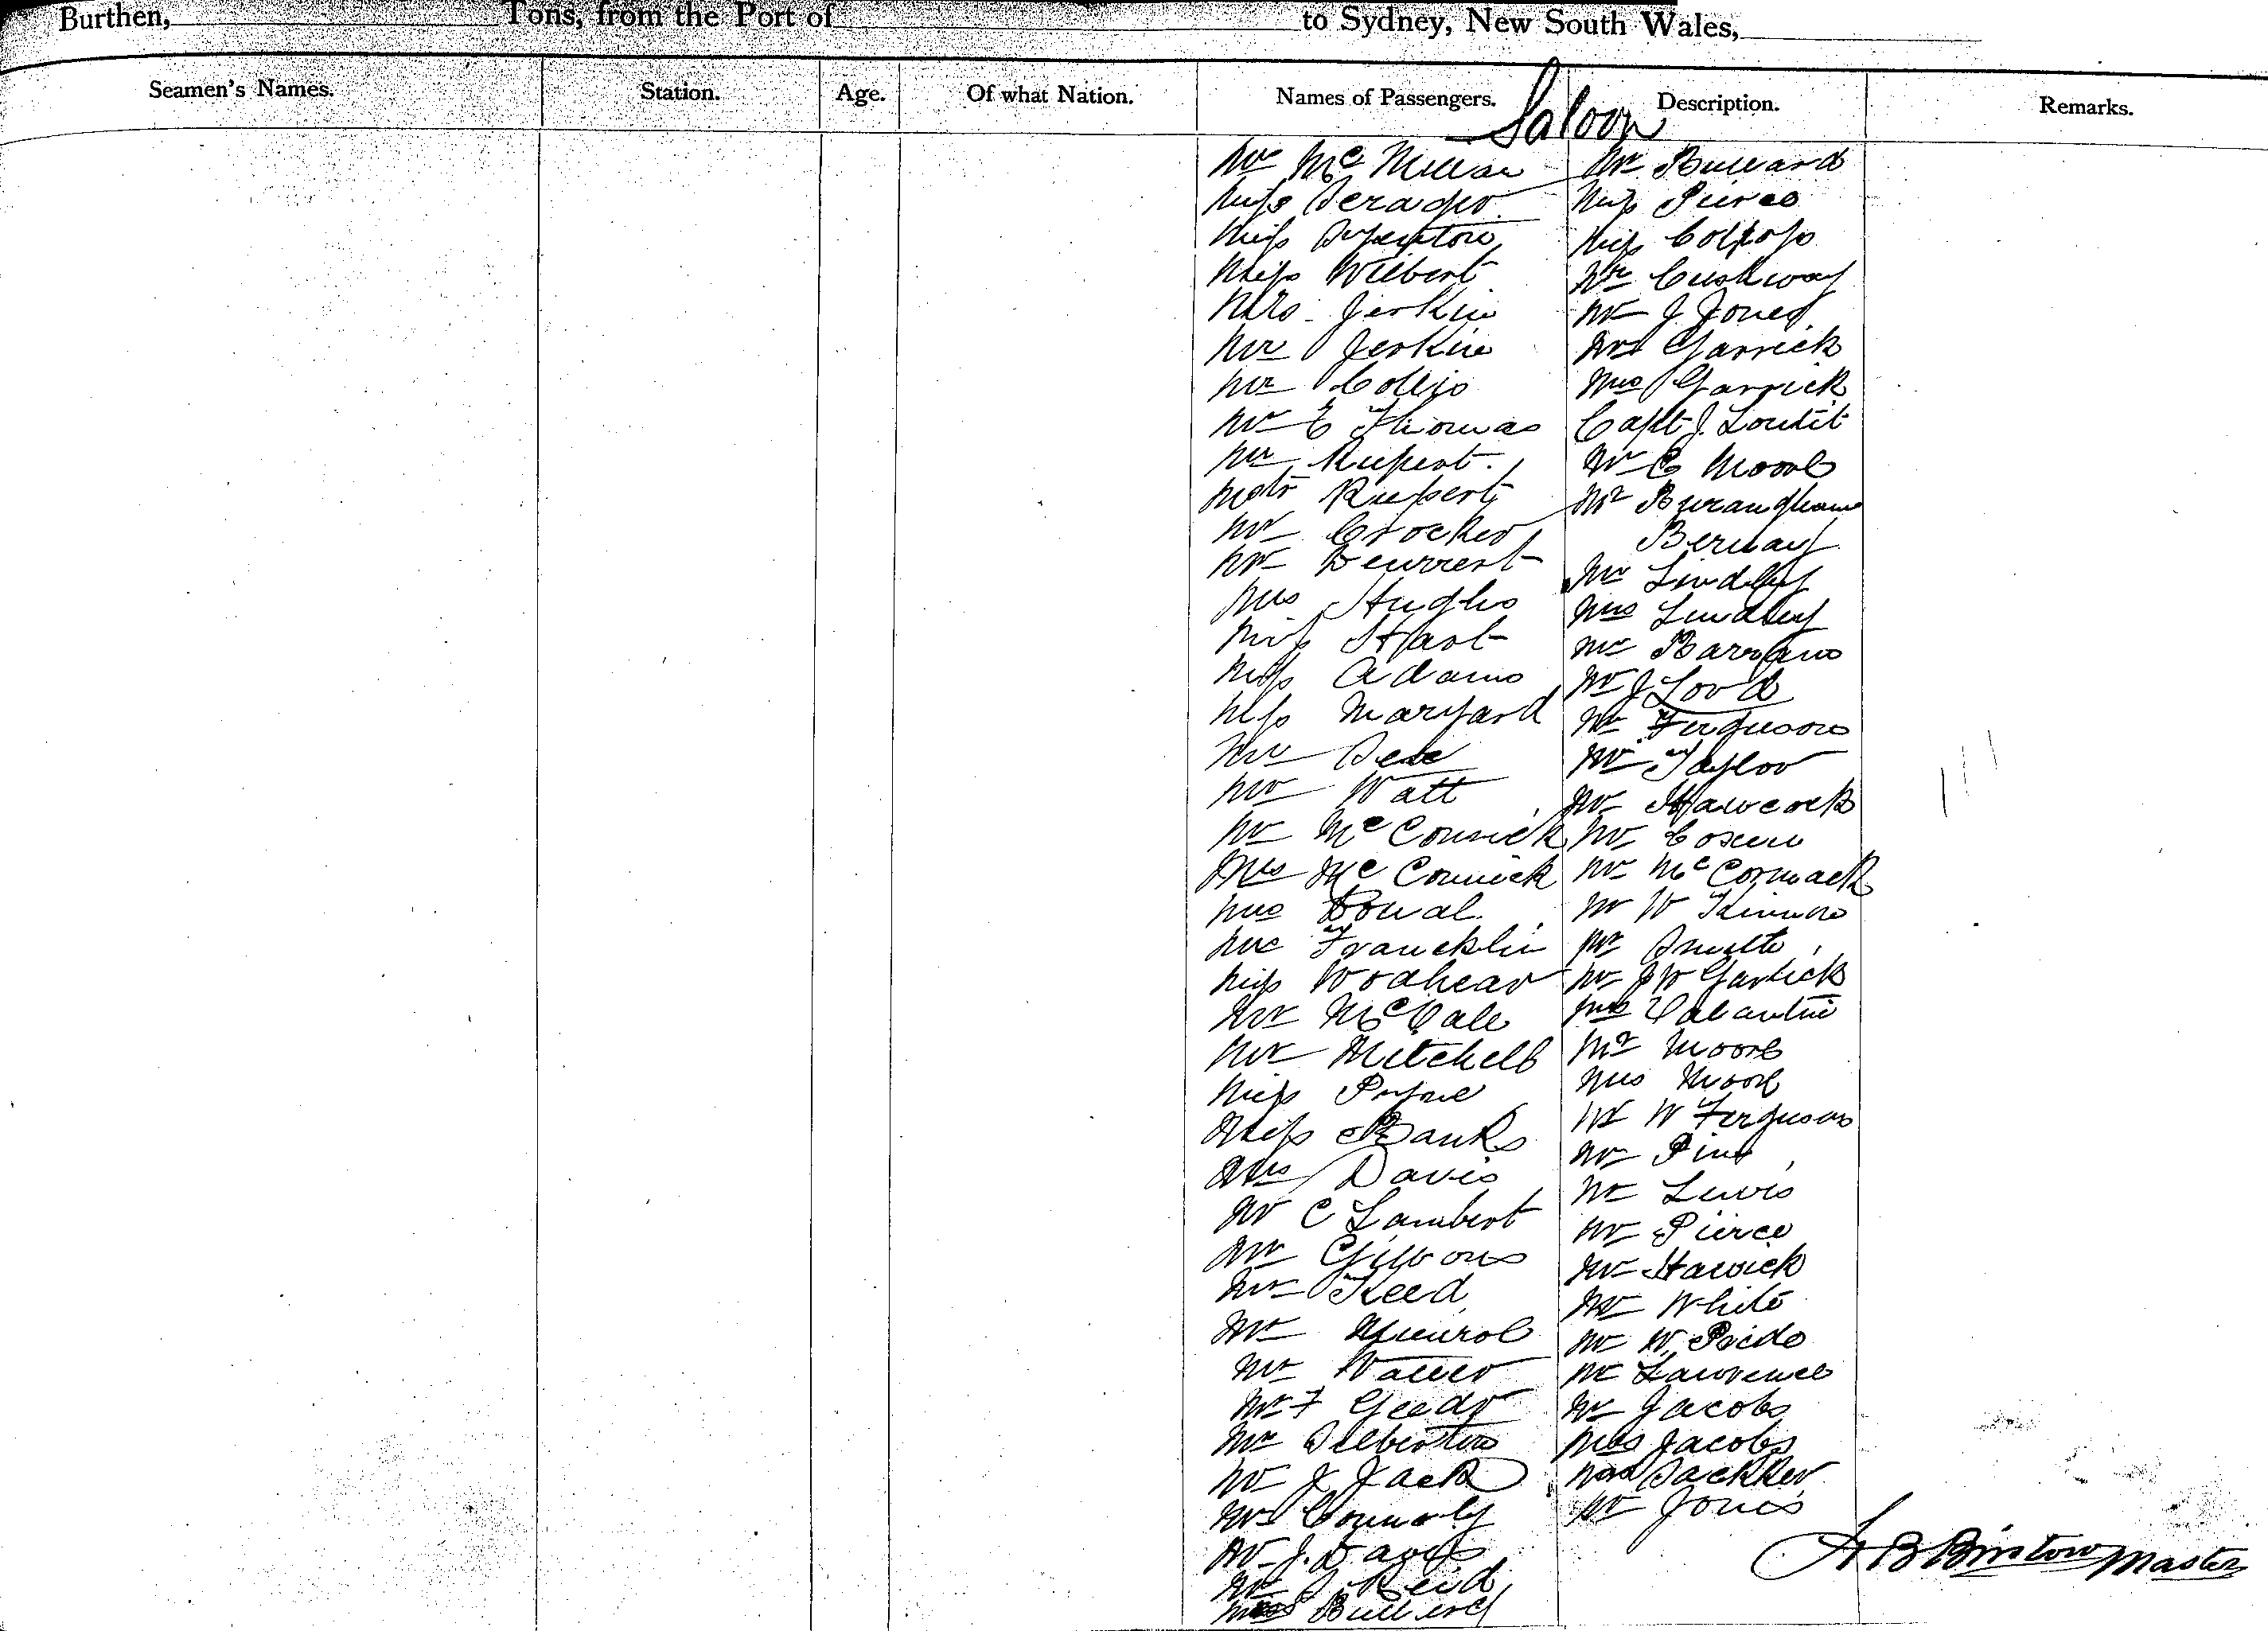 Burthen, Tons, from the Port of to Sydney, New South Wales,
Seamen's Names. Station. Age. Of what Nation. Names of Passengers. Description. Remarks.
Saloon
Mr McMillan
Miss
Miss
Miss Wilbert
Mrs Jerkin
Mr Jerkin
Mr Collis
Mr E Thomas
Mr Rupert.
Mstr Rupert
Mr Crocker
Mr
Mrs Hughs
Miss Hart
Miss Adams
Miss Maryard
Mr
Mr Watt
Mr McCormick
Mrs McCormick
Mrs
Mr Francklin
Miss Woodhead
Mr McCale
Mr Mitchell
Miss Payne
Miss Banks
Mrs Davis
Mr C Lambert
Mr Gibbons
Mr Reed
Mr Munroe
Mr Waller
Mr F
Mr Silberton
Mr J Jack
Mr Connoly
Mr J. Davis
Mr J Reid
Bullard
Mr Bullard
Miss Pierce
Miss
Mr Cushway
Mr J Jones
Mr Garrick
Mrs Garrick
Capt J. Loutit
Mr C Moore
Mr
Bernay
Mr Lindley
Mrs Lindley
Mr Barrans
Mr J Lord
Mr Ferguson
Mr Taylor
Mr Hawcock
Mr Cosew
Mr McCormack
Mr W
Mr Smith
Mr J W Garlick
Mrs Valantine
Mr Moore
Mrs Moore
Mr W Ferguson
Mr Pine
Mr Lewis
Mr Pierce
Mr Hawick
Mr White
Mr W.
Mr Lawrence
Mr Jacobs
Mrs Jacobs
Sackker
Mr Jones
Binstow Master